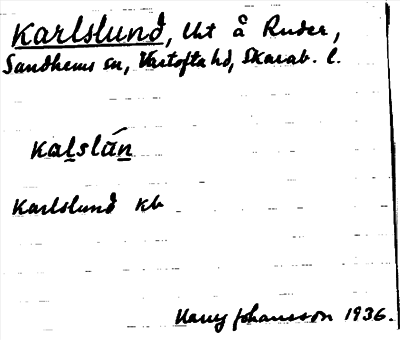 Karlslund, lht å Ruder,
Sandhems sn, Vartofta hd, Skarab. l.
kalslán
Karlslund kb
Harry Johansson 1936.